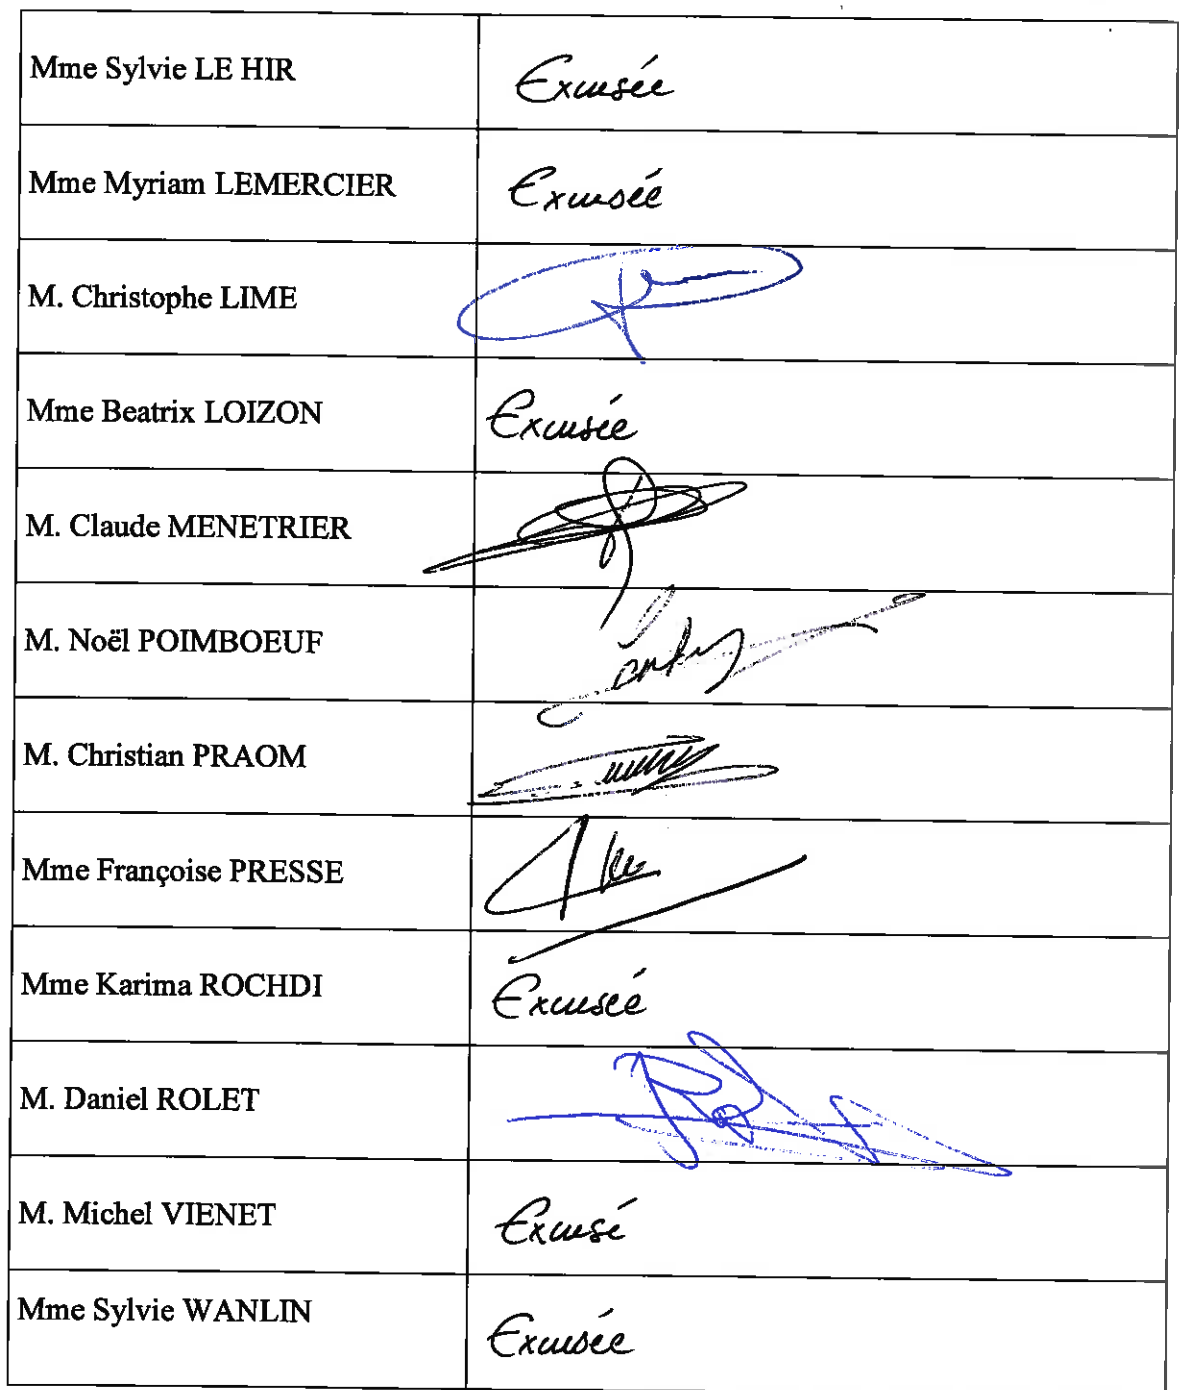 Mme Sylvie LE HIR Excusée
Mme Myriam LEMERCIER Excusée
M. Christophe LIME
Mme Beatrix LOIZON Excusée
M. Claude MENETRIER
M. Noël POIMBOEUF
M. Christian PRAOM
Mme Françoise PRESSE
Mme Karima ROCHDI Excusée
M. Daniel ROLET
M. Michel VIENET Excusé
Mme Sylvie WANLIN Excusée